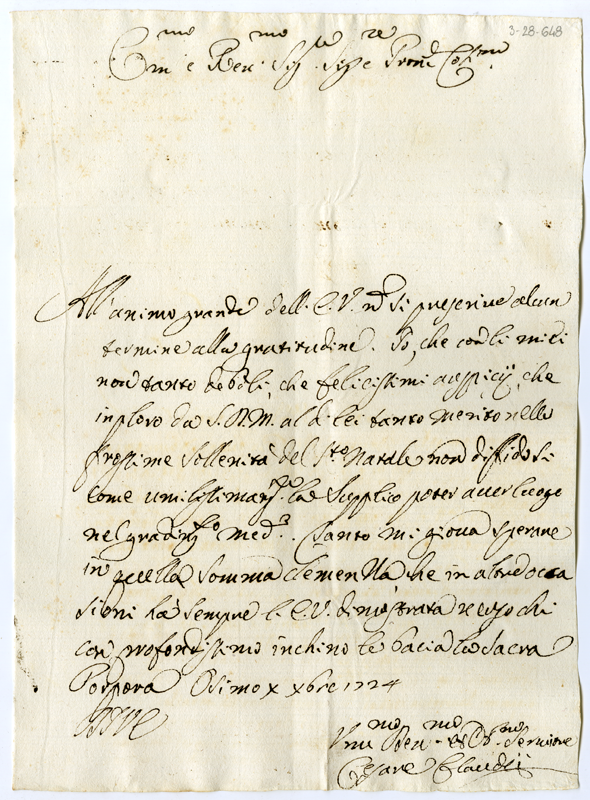 3-28-648
Em.mo e Rev.mo Sig.re Sig.re e Pron Col.mo
All'animo grande dell'E.V. nō si prescrive alcun
termine alla gratitudine. Io, che con li miei
non tanto deboli, che felicissimi auspicij, che
inploro da S.D.M. al di lei tanto merito nelle
prossime sollenità del S.to Natale non diffido si
come umilissimam.te la supplico poter aver luogo
nel gradim.to med.o. Tanto mi giova sperare
in quella somma clemenza che in altre occa
sioni hà sempre l'E.V. dimostrata verso chi
con profondissimo inchino le bacia la sacra
Porpora Osimo x xbre 1724
D.V.E.
Um.mo Dev.mo et Ob.mo Servitore
Cesare Claudij